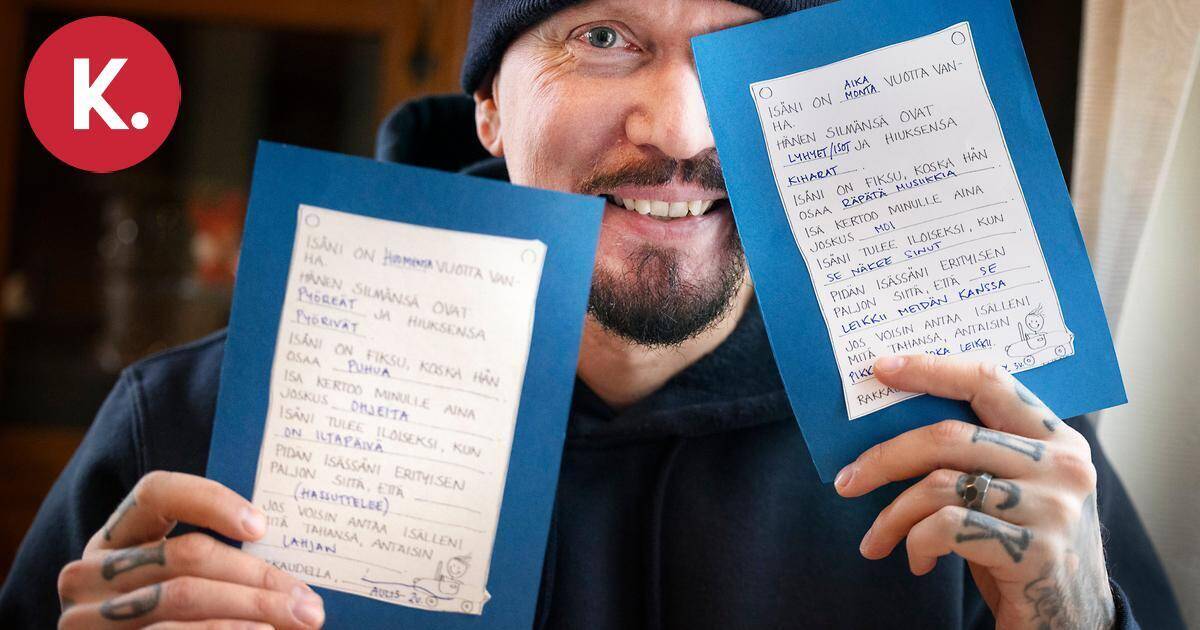 K.
ISÄNI ON HUOMENNA VUOTTA VAN-
HA.
HÄNEN SILMÄNSÄ OVAT
PYÖREÄT JA HIUKSENSA
PYÖRIVÄT
ISÄNI ON FIKSU, KOSKA HÄN
OSAA PUHUA
ISÄ KERTOO MINULLE AINA
JOSKUS OHJEITA
ISÄNI TULEE ILOISEKSI, KUN
ON ILTAPÄIVÄ
PIDÄN ISÄSSÄNI ERITYISEN
PALJON SIITÄ, ETTÄ
(HASSUTTELEE)
JOS VOISIN ANTAA ISÄLLENI
MITÄ TAHANSA, ANTAISIN
LAHJAN
KAUDELLA,
AULIS 2v.
ISÄNI ON AIKA MONTA VUOTTA VAN-
HA.
HÄNEN SILMÄNSÄ OVAT
LYHYET/ISOT JA HIUKSENSA
KIHARAT.
ISÄNI ON FIKSU, KOSKA HÄN
OSAA RÄPÄTÄ MUSIIKKIA
ISÄ KERTOO MINULLE AINA
JOSKUS MOI
ISÄNI TULEE ILOISEKSI, KUN
SE NÄKEE SINUT
PIDÄN ISÄSSÄNI ERITYISEN
PALJON SIITÄ, ETTÄ SE
LEIKKII MEIDÄN KANSSA
JOS VOISIN ANTAA ISÄLLENI
MITÄ TAHANSA, ANTAISIN
PIKK JOKA LEIKKII.
RAKKA